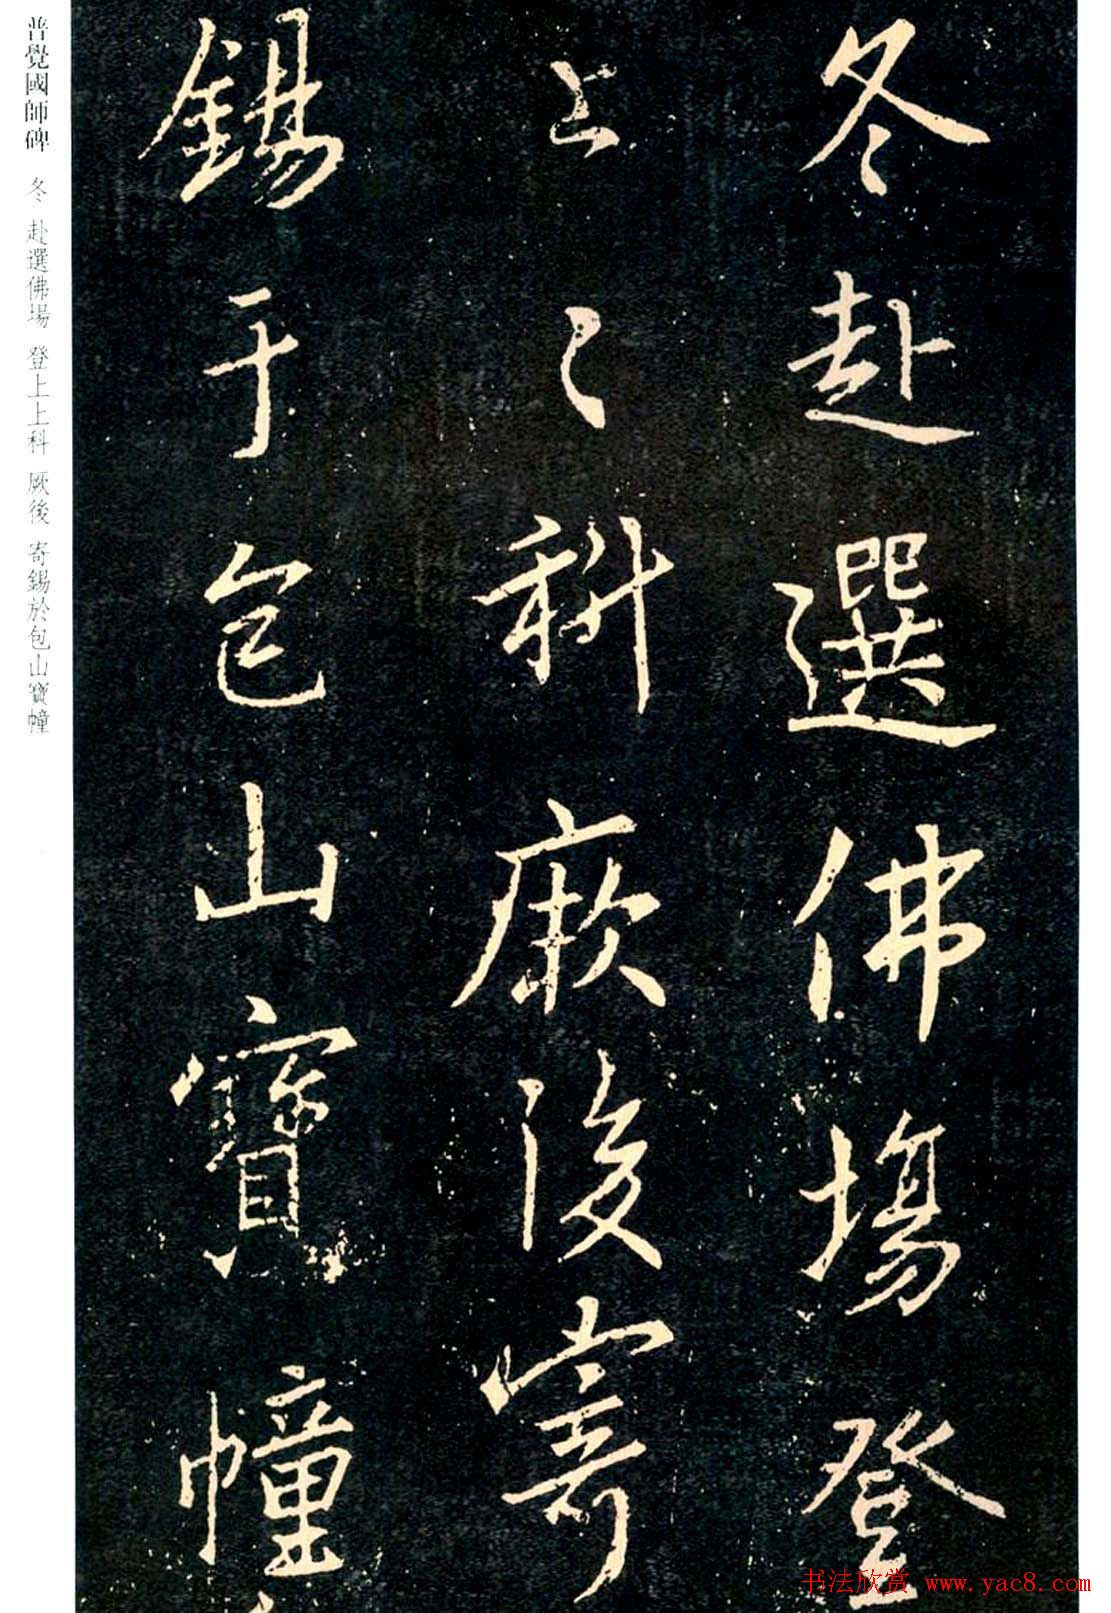 冬赴選佛場登
上〻科厥後寄
錫于包山寶幢
普覺國師碑 冬 赴選佛場 登上上科 厥後 寄錫於包山寶幢
书法欣赏 www.yac8.com